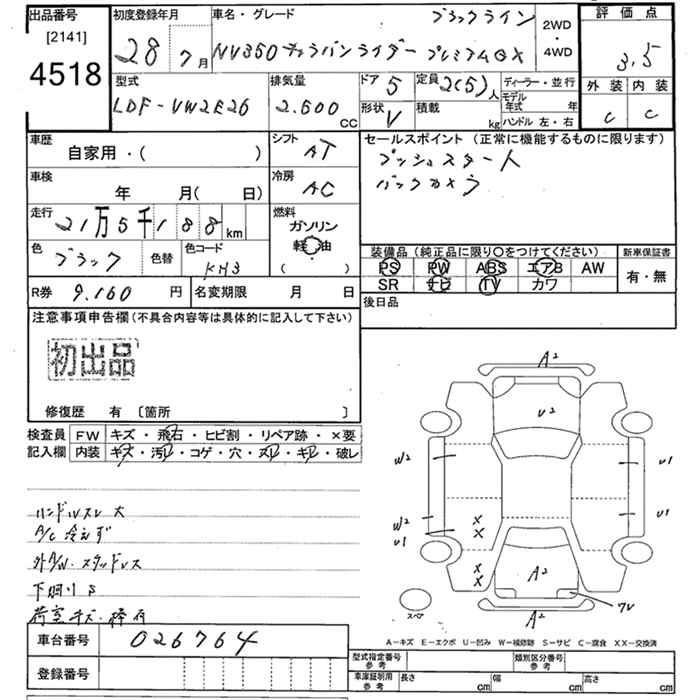 出品番号
[2141]
4518
初度登録年月
28 7月
車名・グレード
ブラックライン
NV350キャラバンライダー プレミアムGX
2WD
・
4WD
評価点
3.5
外装 内装
C C
型式
LDF-VW2E26
排気量
2.500 CC
ドア 5
定員 2(5)人
形状 V
積載 kg
ディーラー・並行
モデル年式 年
ハンドル 左・右
車歴
自家用・( )
シフト AT
車検
年 月( 日)
冷房 AC
走行
21万5千188km
燃料
ガソリン
軽油
( )
色
ブラック
色替
色コード
KH3
R券 9.160円
名変期限 月 日
セールスポイント(正常に機能するものに限ります)
プッシュスタート
バックカメラ
装備品(純正品に限り○をつけてください)
PS PW ABS エアB AW
SR ナビ TV カワ
新車保証書
有・無
後日品
注意事項申告欄(不具合内容等は具体的に記入して下さい)
初出品
修復歴 有 [箇所 ]
検査員記入欄
FW キズ・飛石・ヒビ割・リペア跡・×要
内装 キズ・汚レ・コゲ・穴・スレ・キレ・破レ
ハンドルスレ大
A/C冷えず
外AW.スタッドレス
下回りS
荷室キズ・棒有
車台番号 026764
登録番号
A²
U²
W²
U1
W²
U1
U1
X
X
X
X
A²
7V
A²
スペア
A-キズ E-エクボ U-凹み W-補修跡 S-サビ C-腐食 XX-交換済
型式指定番号 参考
類別区分番号 参考
車庫証明用 参考
長さ cm
幅 cm
高さ cm